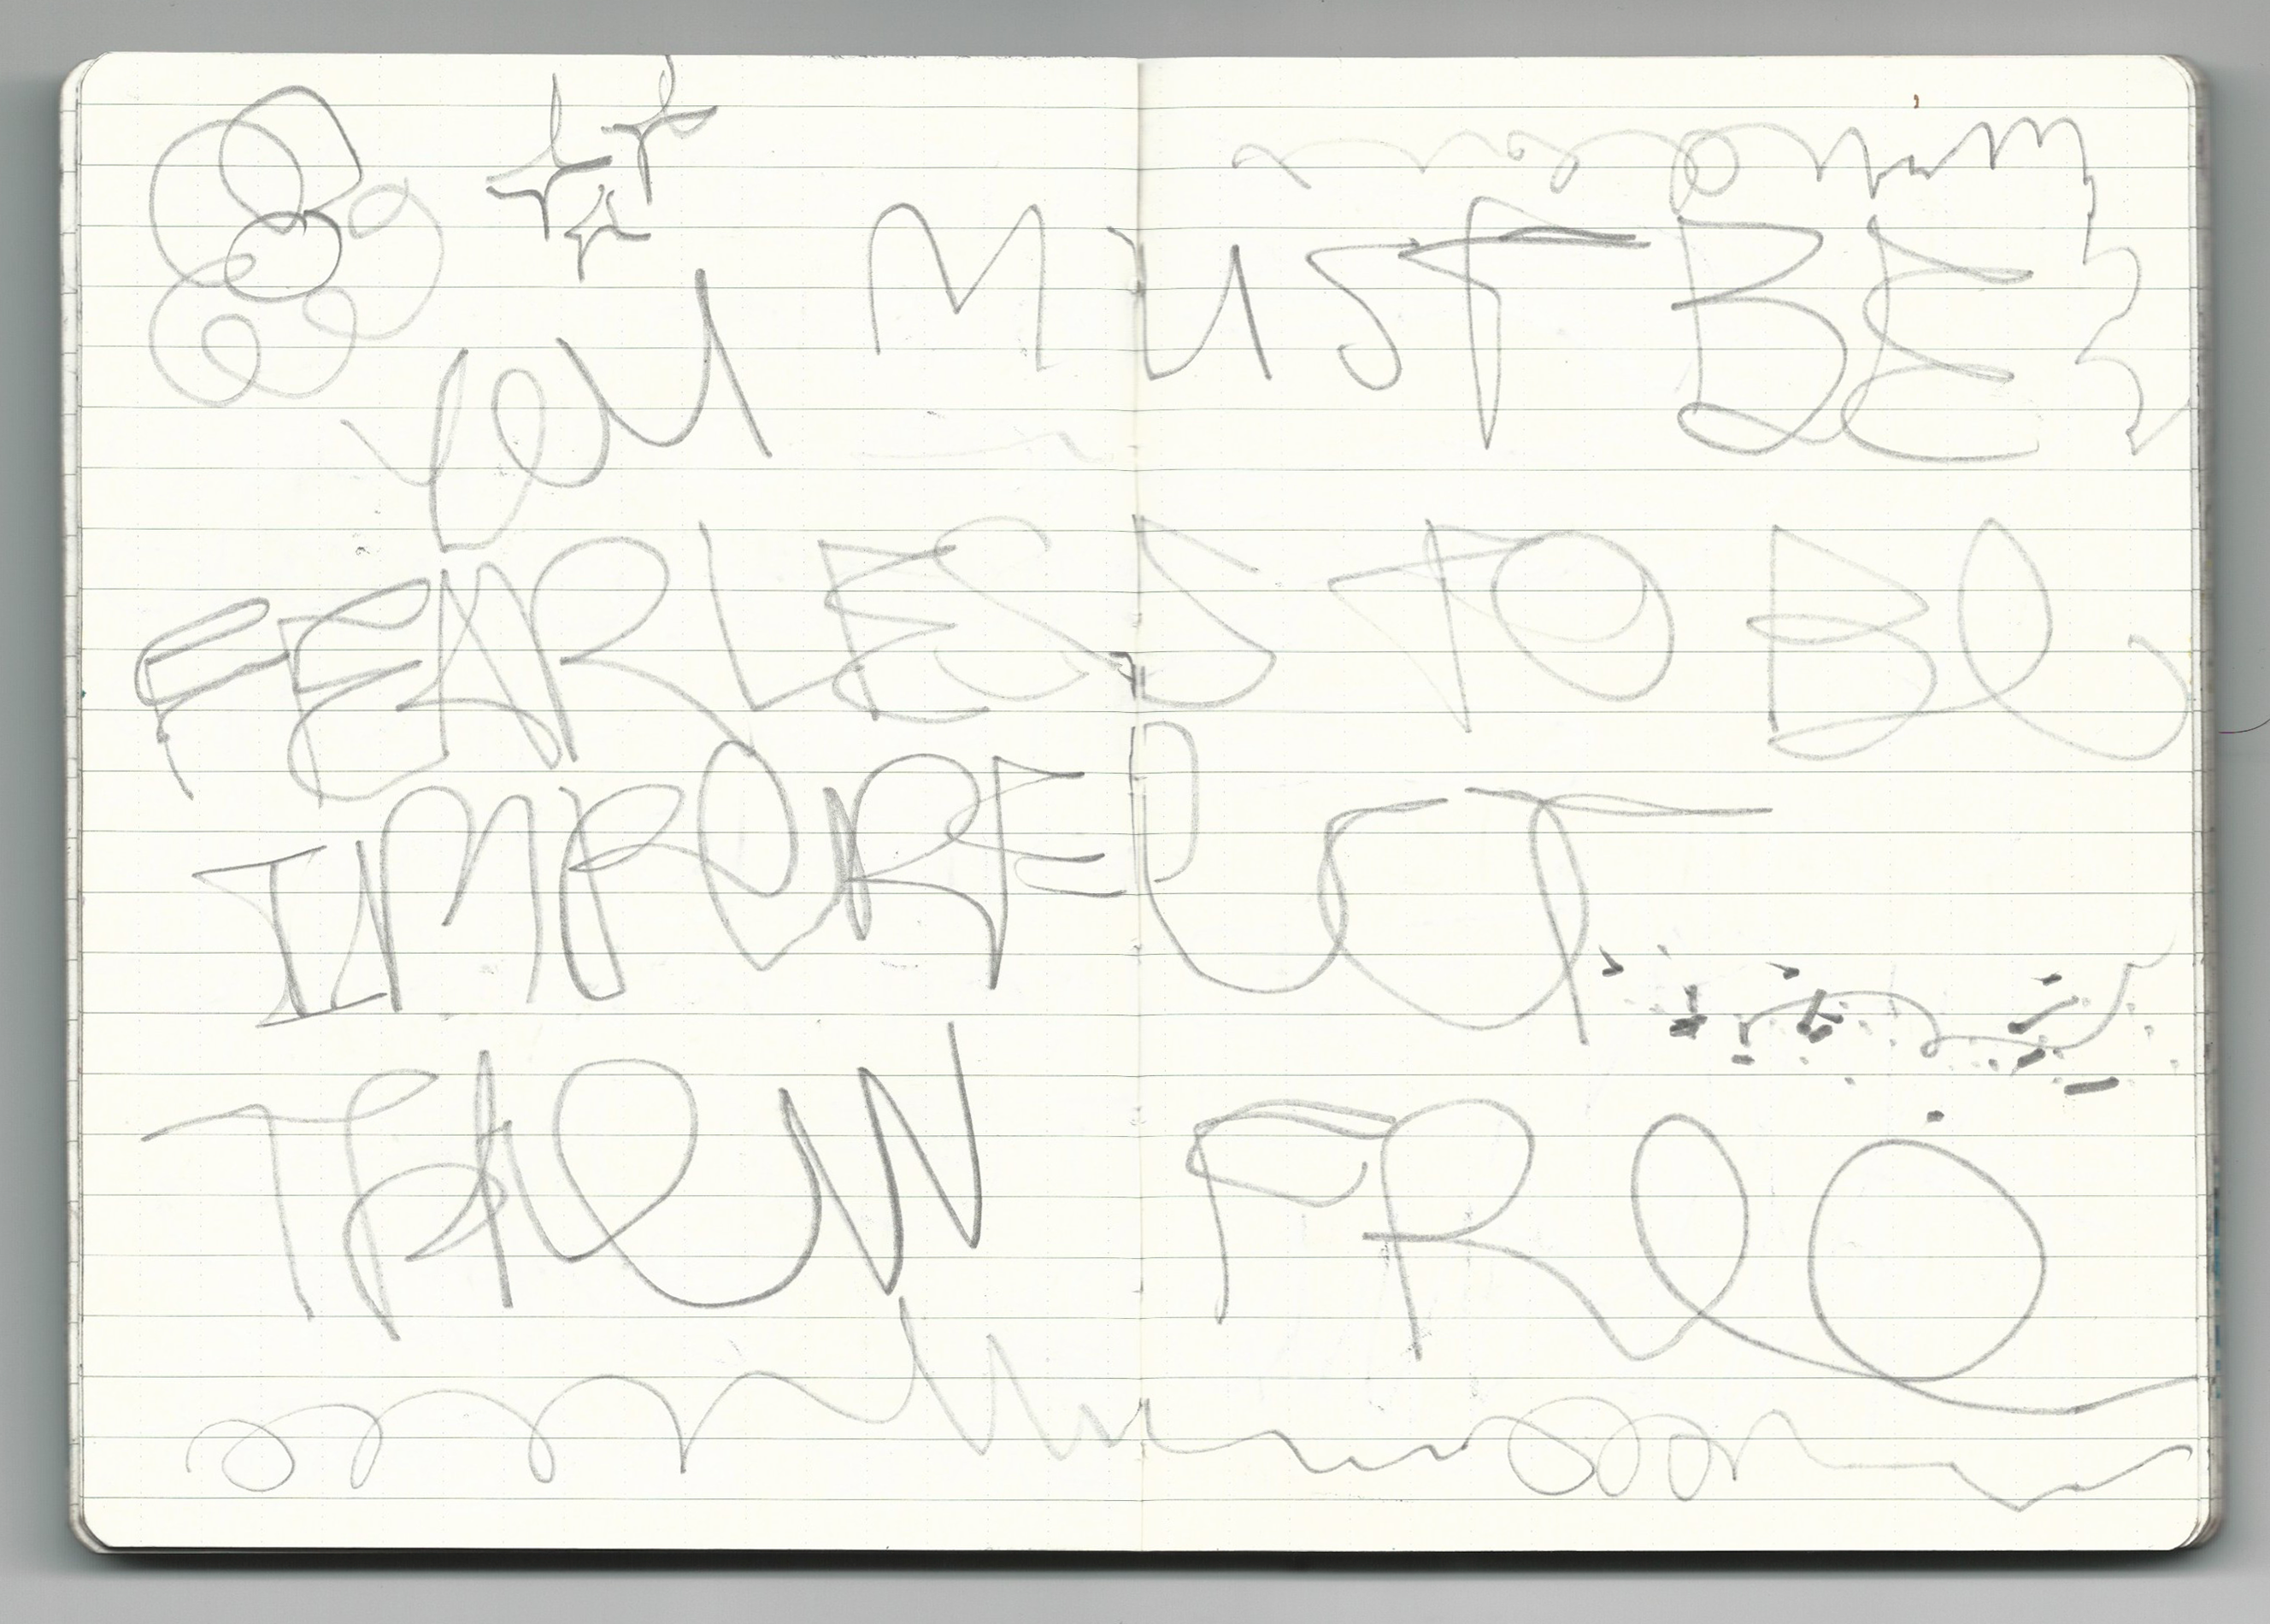 YOU MUST BE
FEARLESS TO BE
IMPERFECT
THEN FREE